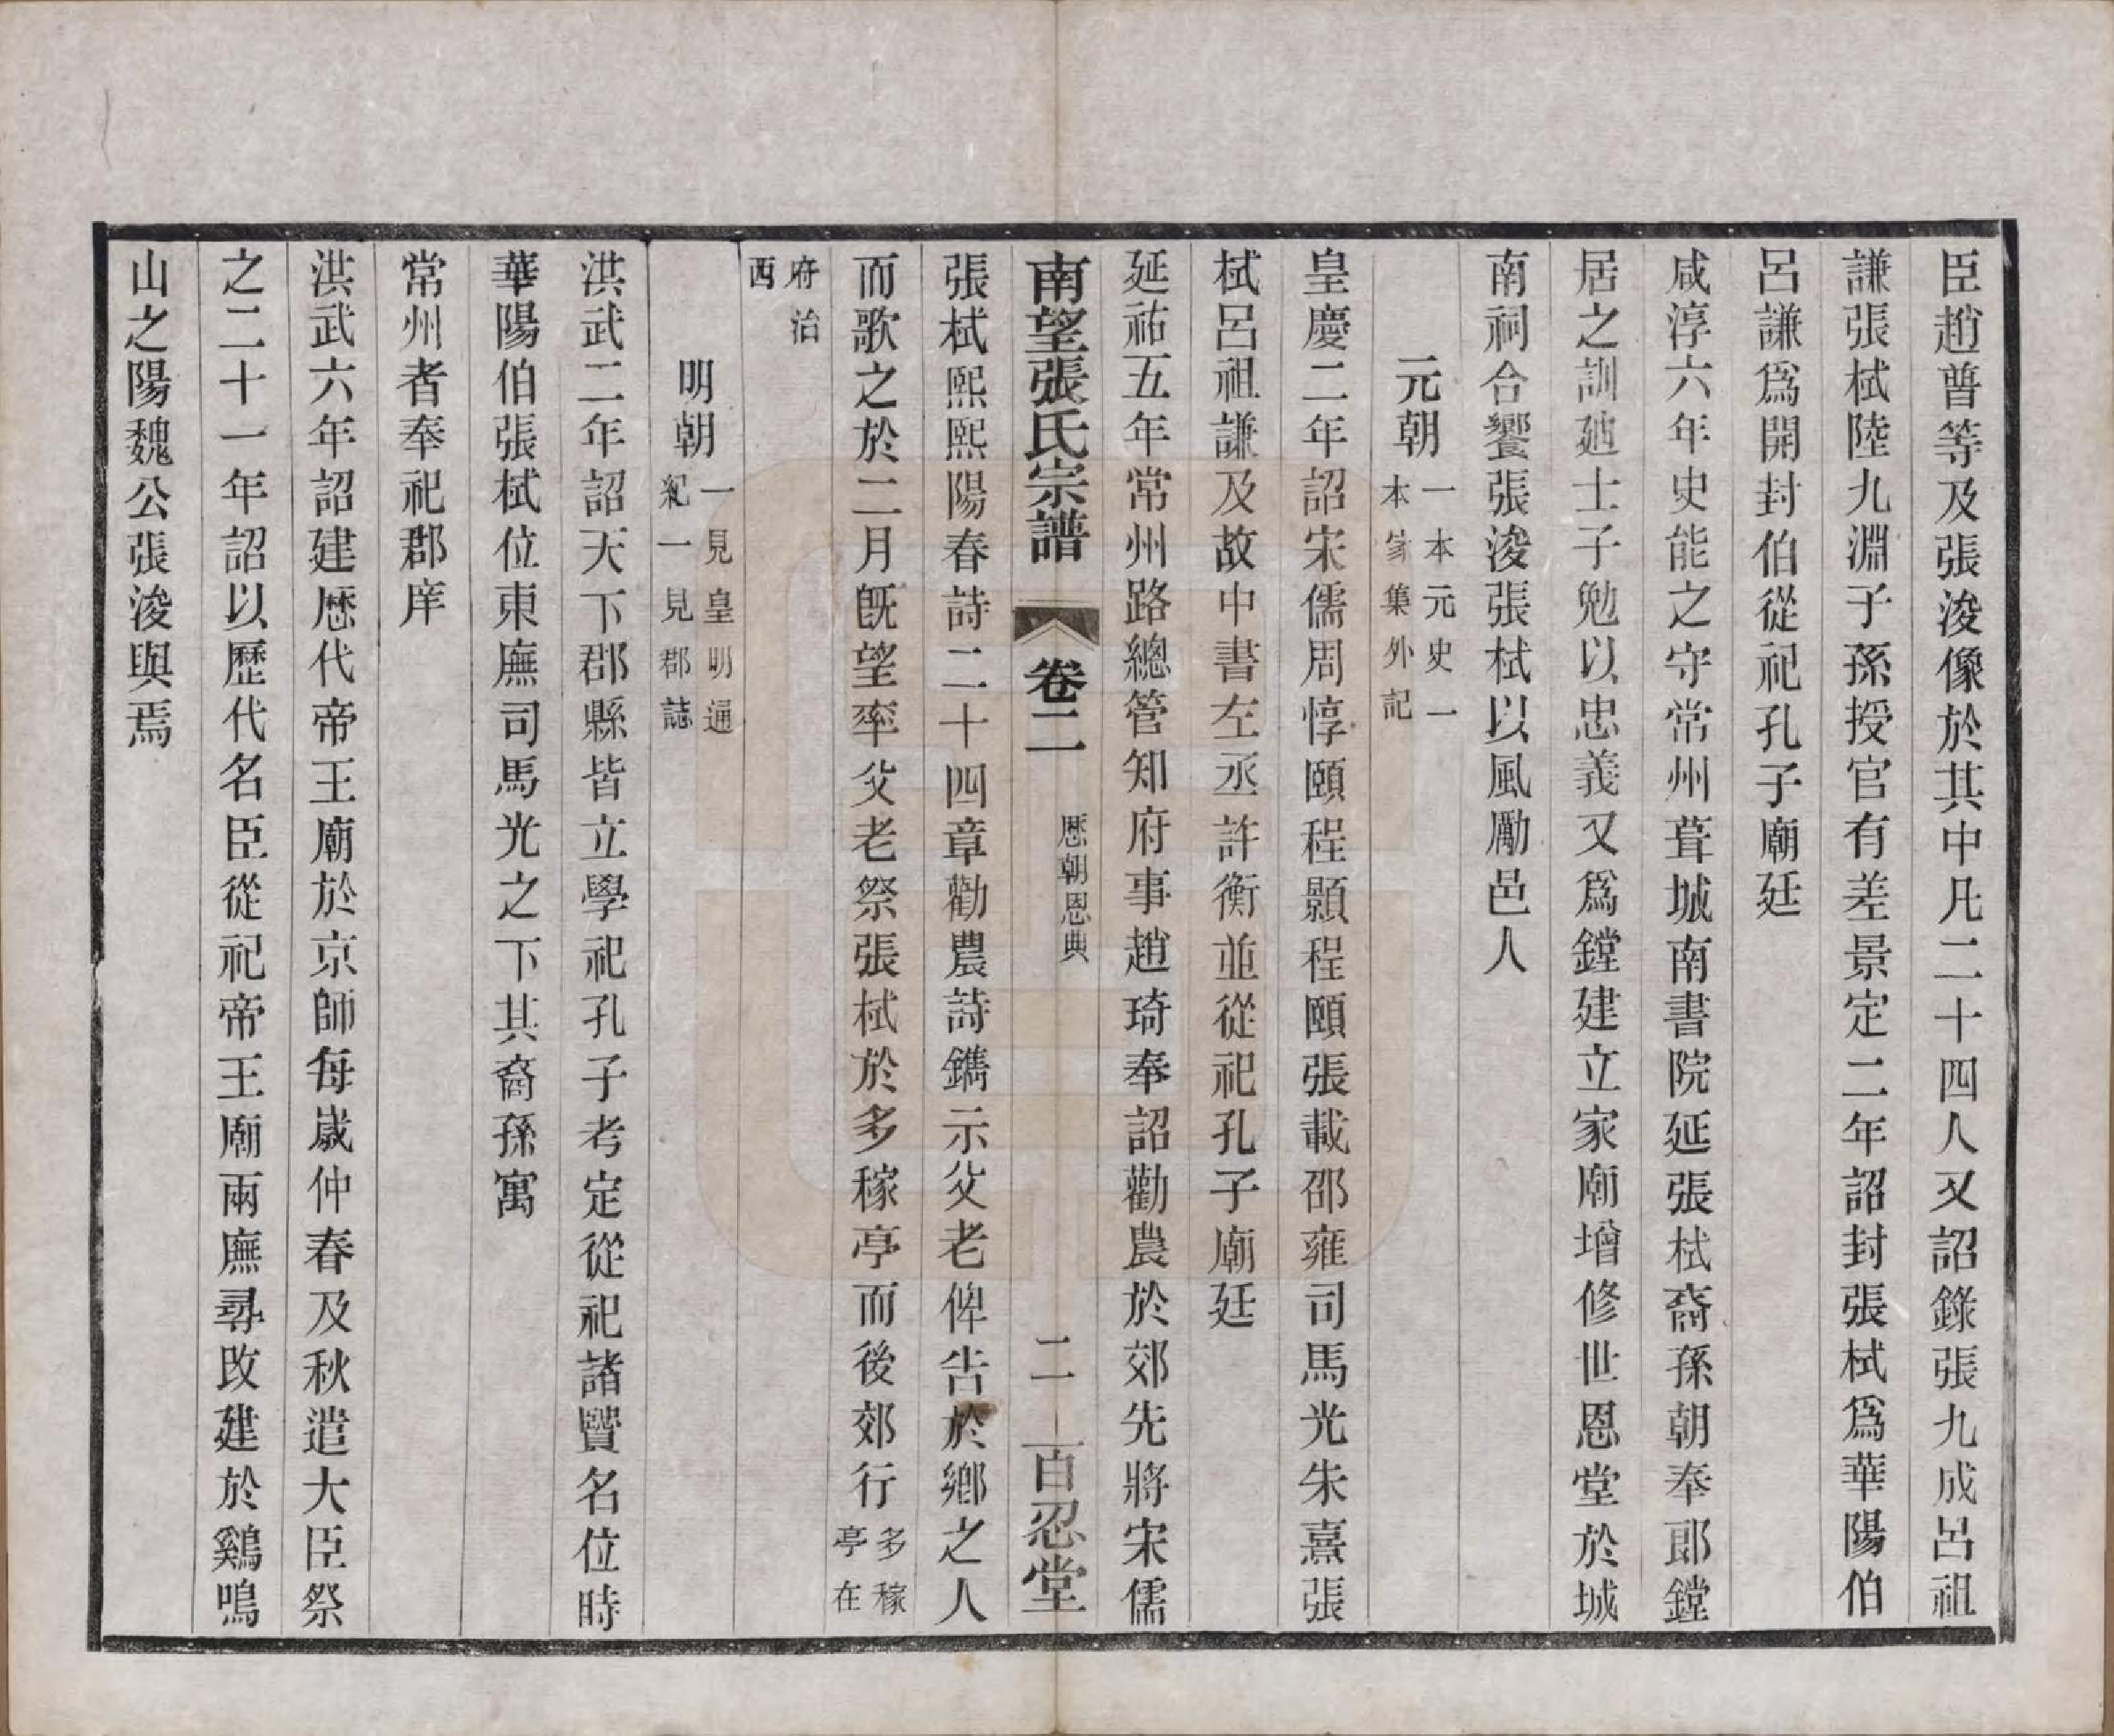 臣趙普等及張浚像於其中凡二十四人又詔錄張九成呂祖
謙張栻陸九淵子孫授官有差景定二年詔封張栻爲華陽伯
呂謙爲開封伯從祀孔子廟廷
咸淳六年史能之守常州葺城南書院延張栻裔孫朝奉郎鏜
居之訓廸士子勉以忠義又爲鏜建立家廟增修世恩堂於城
南祠合饗張浚張栻以風勵邑人
元朝
一本元史一
本家集外記
皇慶二年詔宋儒周惇頤程顥程頤張載邵雍司馬光朱熹張
栻呂祖謙及故中書左丞許衡並從祀孔子廟廷
延祐五年常州路總管知府事趙琦奉詔勸農於郊先將宋儒
南望張氏宗譜
卷二
歷朝恩典
二
百忍堂
張栻熙熙陽春詩二十四章勸農詩鐫示父老俾告於鄉之人
而歌之於二月旣望率父老祭張栻於多稼亭而後郊行
多稼
亭在
府治
西
明朝
一見皇明通
紀一見郡誌
洪武二年詔天下郡縣皆立學祀孔子考定從祀諸賢名位時
華陽伯張栻位東廡司馬光之下其裔孫寓
常州者奉祀郡庠
洪武六年詔建歷代帝王廟於京師每歲仲春及秋遣大臣祭
之二十一年詔以歷代名臣從祀帝王廟兩廡尋改建於鷄鳴
山之陽魏公張浚與焉